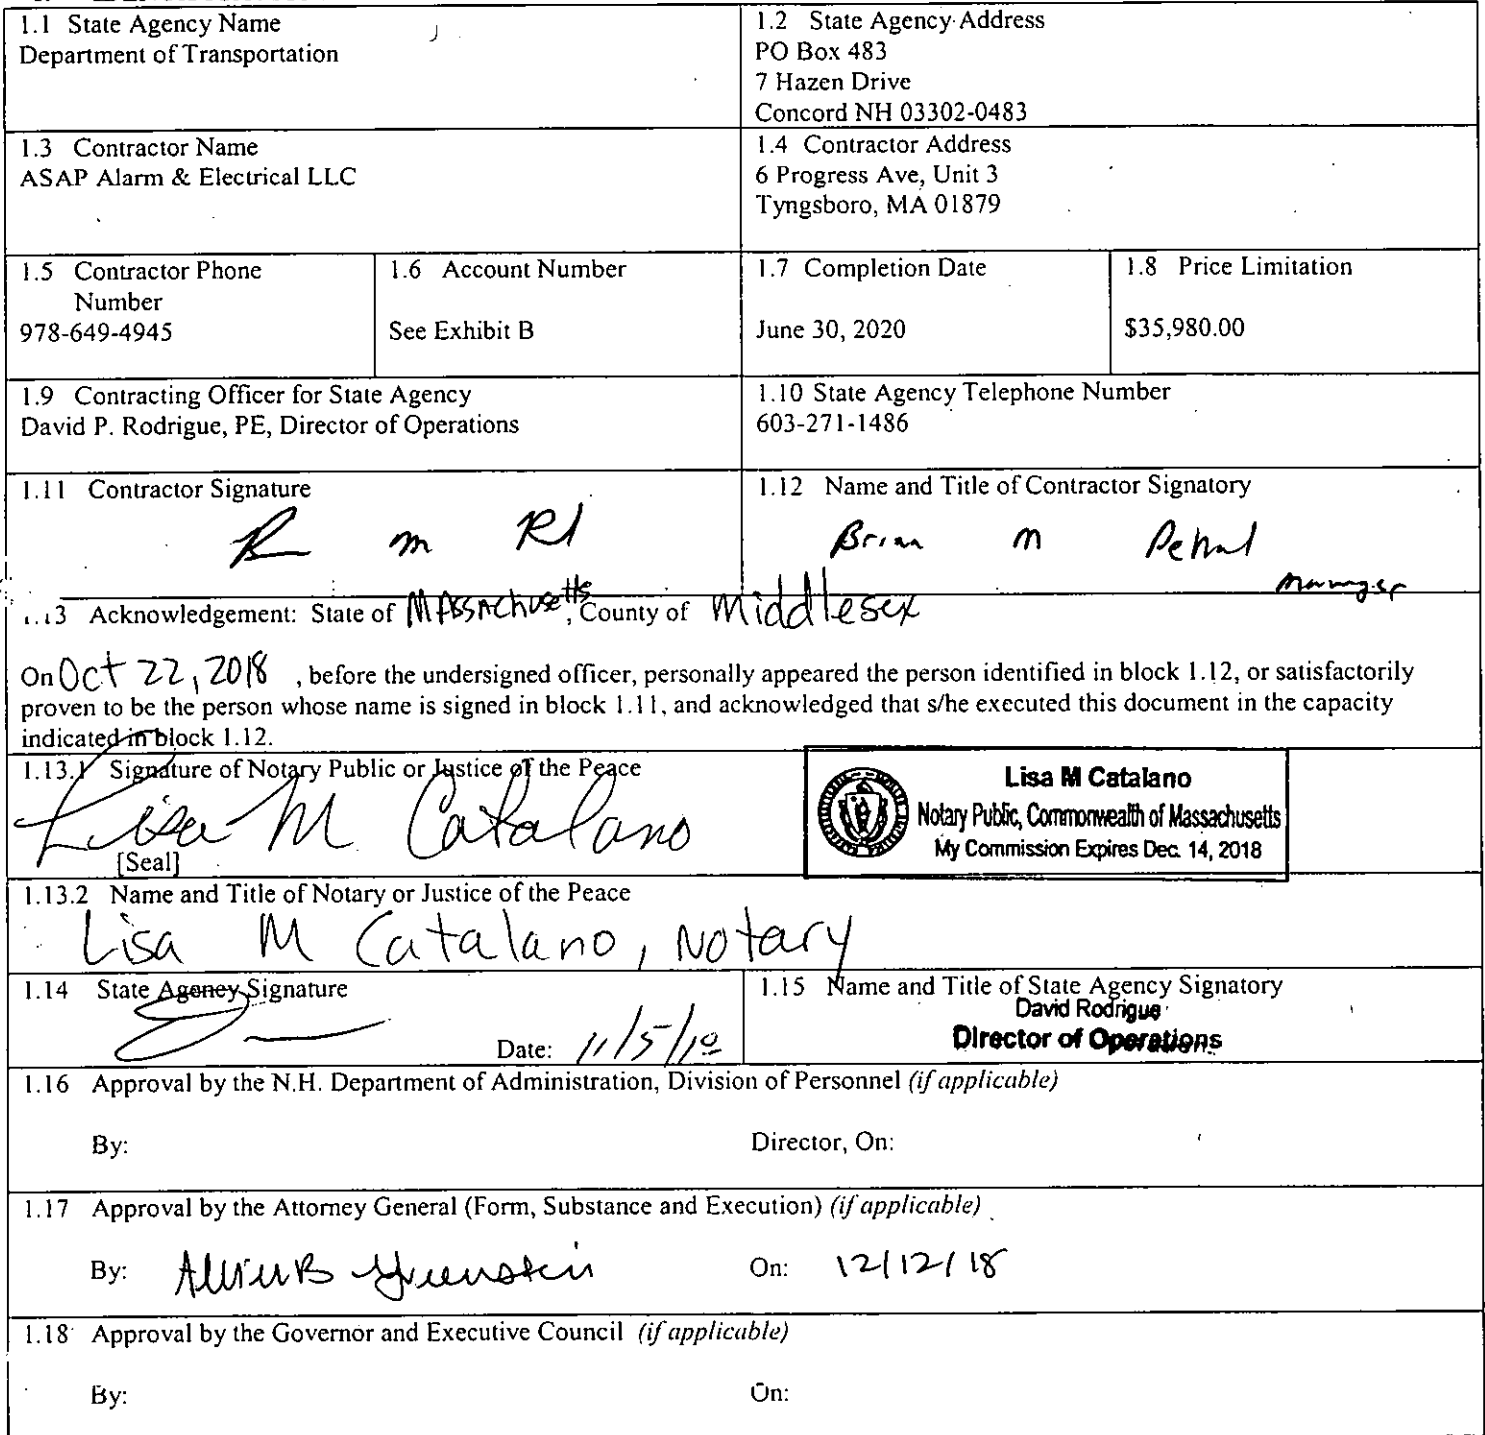 1.1 State Agency Name
Department of Transportation
1.2 State Agency Address
PO Box 483
7 Hazen Drive
Concord NH 03302-0483
1.3 Contractor Name
ASAP Alarm & Electrical LLC
1.4 Contractor Address
6 Progress Ave, Unit 3
Tyngsboro, MA 01879
1.5 Contractor Phone
Number
978-649-4945
1.6 Account Number
See Exhibit B
1.7 Completion Date
June 30, 2020
1.8 Price Limitation
$35,980.00
1.9 Contracting Officer for State Agency
David P. Rodrigue, PE, Director of Operations
1.10 State Agency Telephone Number
603-271-1486
1.11 Contractor Signature
1.12 Name and Title of Contractor Signatory
Brian M
Manager
1.13 Acknowledgement: State of Massachusetts, County of Middlesex
On Oct 22, 2018 , before the undersigned officer, personally appeared the person identified in block 1.12, or satisfactorily
proven to be the person whose name is signed in block 1.11, and acknowledged that s/he executed this document in the capacity
indicated in block 1.12.
1.13.1 Signature of Notary Public or Justice of the Peace
Lisa M Catalano
[Seal]
Lisa M Catalano
Notary Public, Commonwealth of Massachusetts
My Commission Expires Dec. 14, 2018
1.13.2 Name and Title of Notary or Justice of the Peace
Lisa M Catalano, Notary
1.14 State Agency Signature
Date: 11/5/18
1.15 Name and Title of State Agency Signatory
David Rodrigue
Director of Operations
1.16 Approval by the N.H. Department of Administration, Division of Personnel (if applicable)
By:
Director, On:
1.17 Approval by the Attorney General (Form, Substance and Execution) (if applicable)
By: Allison B Greenstein
On: 12/12/18
1.18 Approval by the Governor and Executive Council (if applicable)
By:
On: